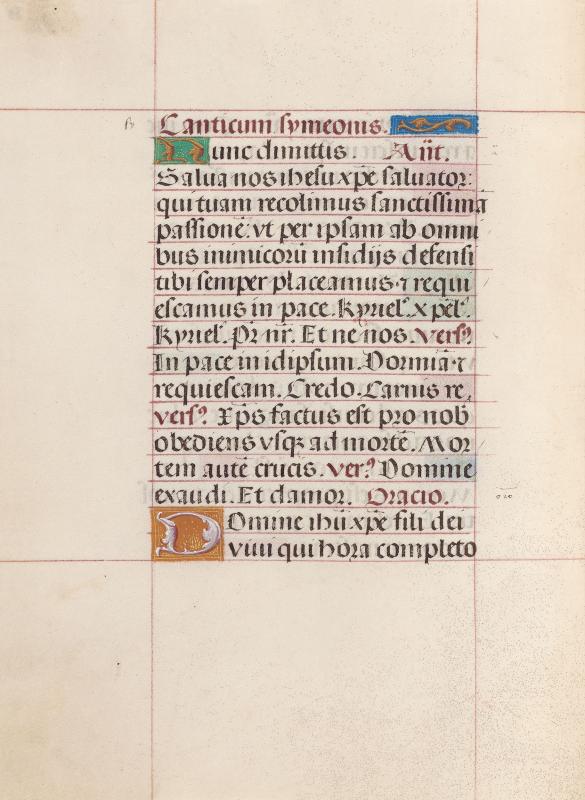 Canticum symeonis.
Nunc dimittis. Añt.
Salua nos ihesu xp̄e saluator:
qui tuam recolimus sanctissimā
passionē: vt per ipsam ab omni
bus inimicorū insidijs defensi
tibi semper placeamus ⁊ requi
escamus in pace. Kyriel̄. xp̄el̄.
Kyriel̄. Pr̄ nr̄. Et ne nos. Versꝰ
In pace in idipsum. Dormiā ⁊
requiescam. Credo. Carnis re.
versꝰ. Xp̄s factus est pro nob̄
obediens vsqꝫ ad mortē. Mor
tem autē crucis. ver.ꝰ Domine
exaudi. Et clamor. Oracio.
Domine ihū xp̄e fili dei
viui qui hora completo